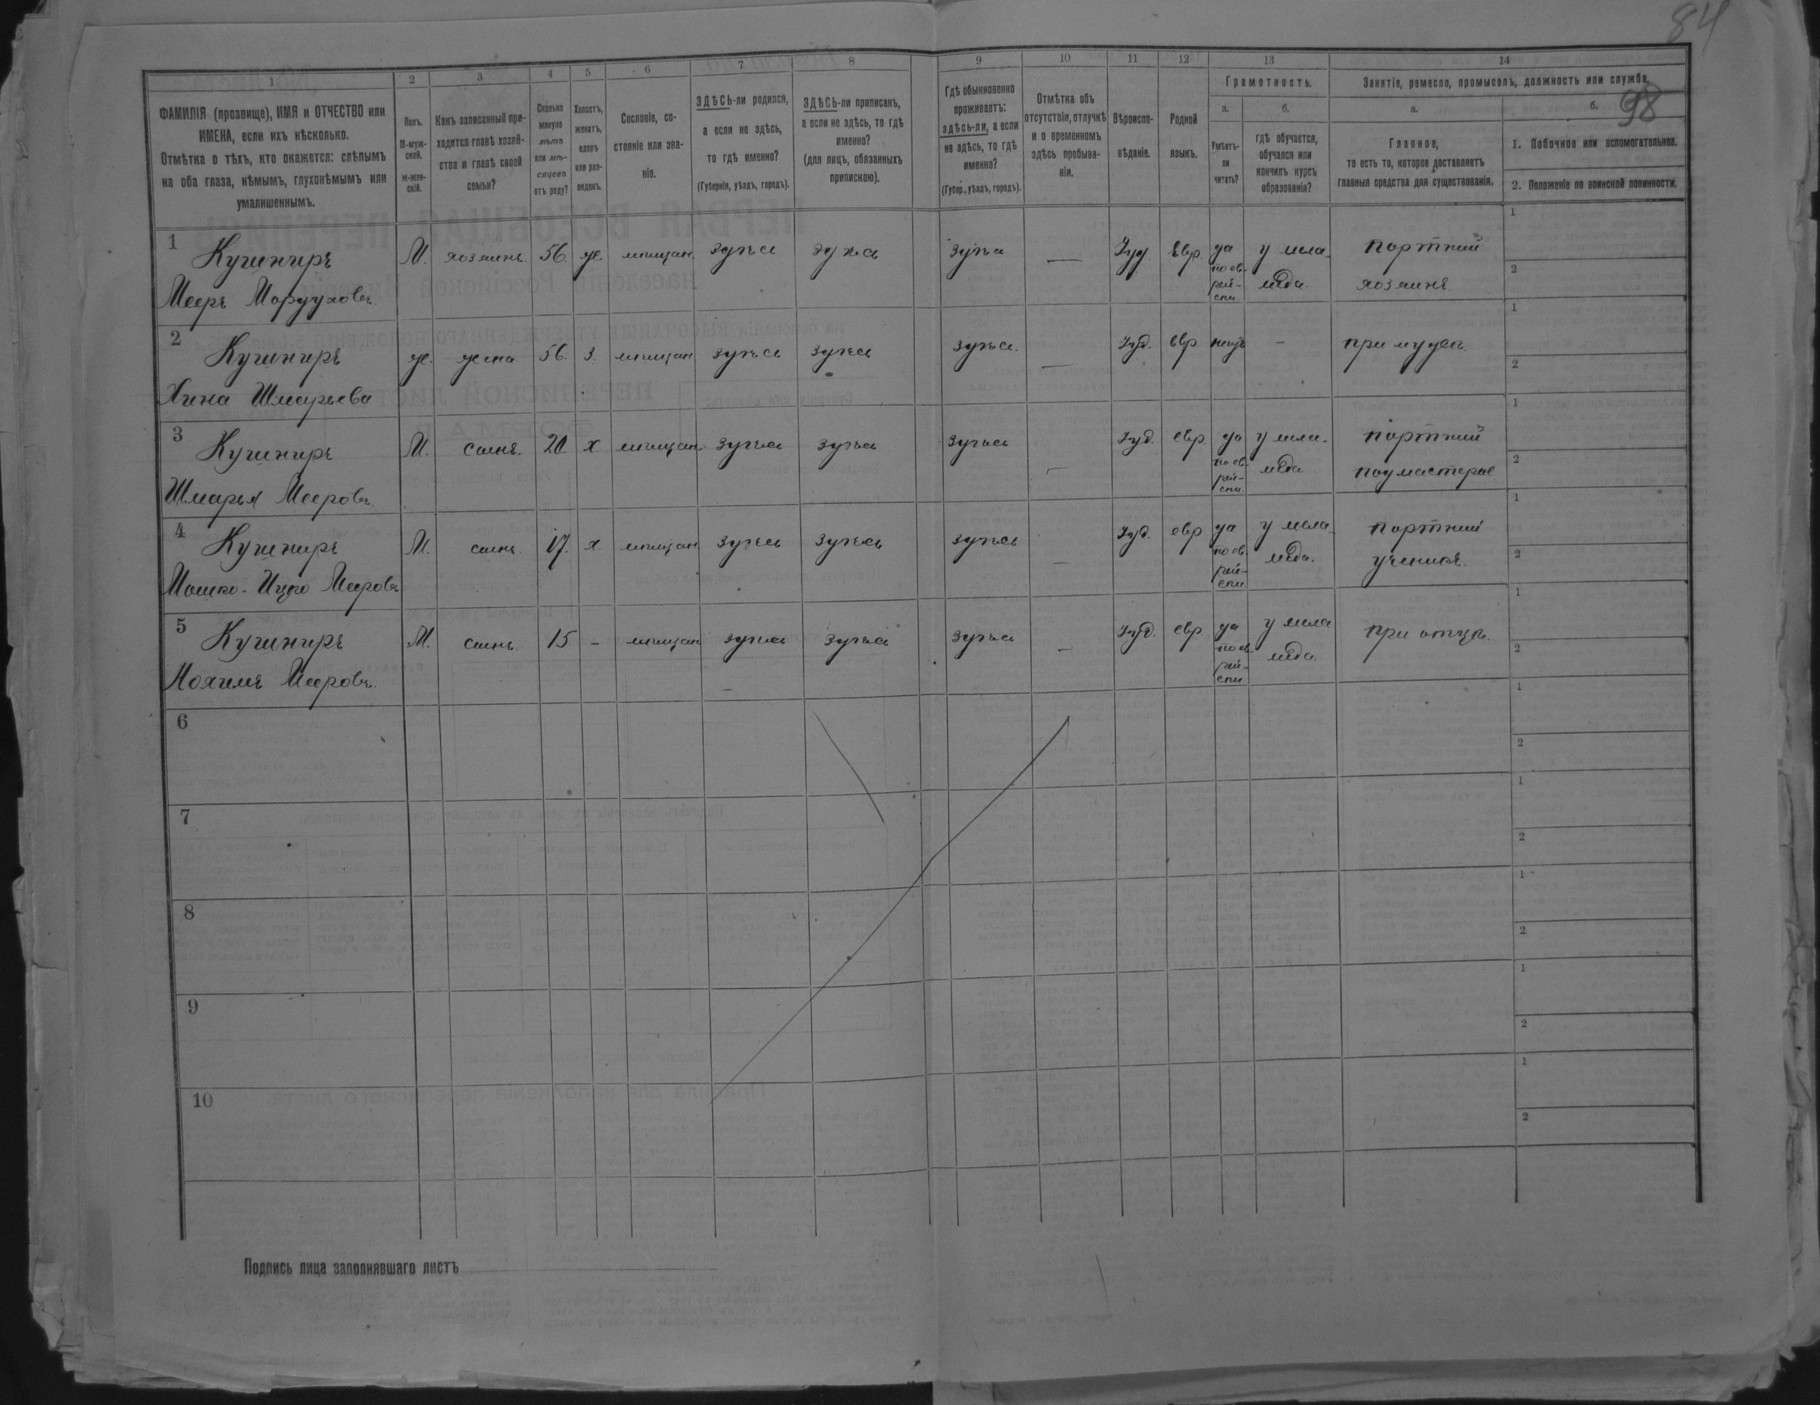 84
98
1
2
3
4
5
6
7
8
9
10
11
12
13
14
ФАМИЛІЯ (прозвище), ИМЯ и ОТЧЕСТВО или
ИМЕНА, если ихъ нѣсколько.
Отмѣтка о тѣхъ, кто окажется: слѣпымъ
на оба глаза, нѣмымъ, глухонѣмымъ или
умалишеннымъ.
Полъ.
М-муж-
ской.
Ж-жен-
скій.
Какъ записанный при-
ходится главѣ хозяй-
ства и главѣ своей
семьи?
Сколько
минуло
лѣтъ
или мѣ-
сяцевъ
отъ роду?
Холостъ,
женатъ,
вдовъ
или раз-
веденъ.
Сословіе, со-
стояніе или зва-
ніе.
ЗДѢСЬ-ли родился,
а если не здѣсь,
то гдѣ именно?
(Губернія, уѣздъ, городъ).
ЗДѢСЬ-ли приписанъ,
а если не здѣсь, то гдѣ
именно?
(для лицъ, обязанныхъ
припискою).
Гдѣ обыкновенно
проживаетъ:
здѣсь-ли, а если
не здѣсь, то гдѣ
именно?
(Губер., уѣздъ, городъ).
Отмѣтка объ
отсутствіи, отлучкѣ
и о временномъ
здѣсь пребыва-
ніи.
Вѣроиспо-
вѣданіе.
Родной
языкъ.
Грамотность.
а.
б.
Умѣетъ-
ли
читать?
гдѣ обучается,
обучался или
кончилъ курсъ
образованія?
Занятіе, ремесло, промыселъ, должность или служба.
а.
б.
Главное,
то есть то, которое доставляетъ
главныя средства для существованія.
1. Побочное или вспомогательное.
2. Положеніе по воинской повинности.
1
Кушниръ
Мееръ Мордуховъ
М.
хозяинъ
56.
ж.
мѣщан.
здѣсь
здѣсь
здѣсь
—
Іуд
Евр.
да
по ев-
рей-
ски
у мела-
меда.
портной
хозяинъ
1
2
2
Кушниръ
Хина Шмарьева
ж.
жена
56.
з.
мѣщан
здѣсь
здѣсь
здѣсь.
—
Іуд.
евр.
нѣтъ
–
при мужѣ.
1
2
3
Кушниръ
Шмарья Мееровъ
М.
сынъ.
20.
х
мѣщан.
здѣсь
здѣсь
здѣсь
—
Іуд.
евр.
да
по ев-
рей-
ски
у мела-
меда
портной
подмастерье
1
2
4
Кушниръ
Мошко-Ицко Мееровъ
М.
сынъ.
17.
х.
мѣщан
здѣсь
здѣсь
здѣсь
—
Іуд.
евр
да
по ев-
рей-
ски
у мела-
меда.
портной
ученикъ.
1
2
5
Кушниръ
Нохимъ Мееровъ.
М.
сынъ.
15
–
мѣщан
здѣсь
здѣсь
здѣсь
—
Іуд.
евр.
да
по ев-
рей-
ски
у мела
меда.
при отцѣ.
1
2
6
1
2
7
1
2
8
1
2
9
1
2
10
1
2
Подпись лица заполнявшаго листъ